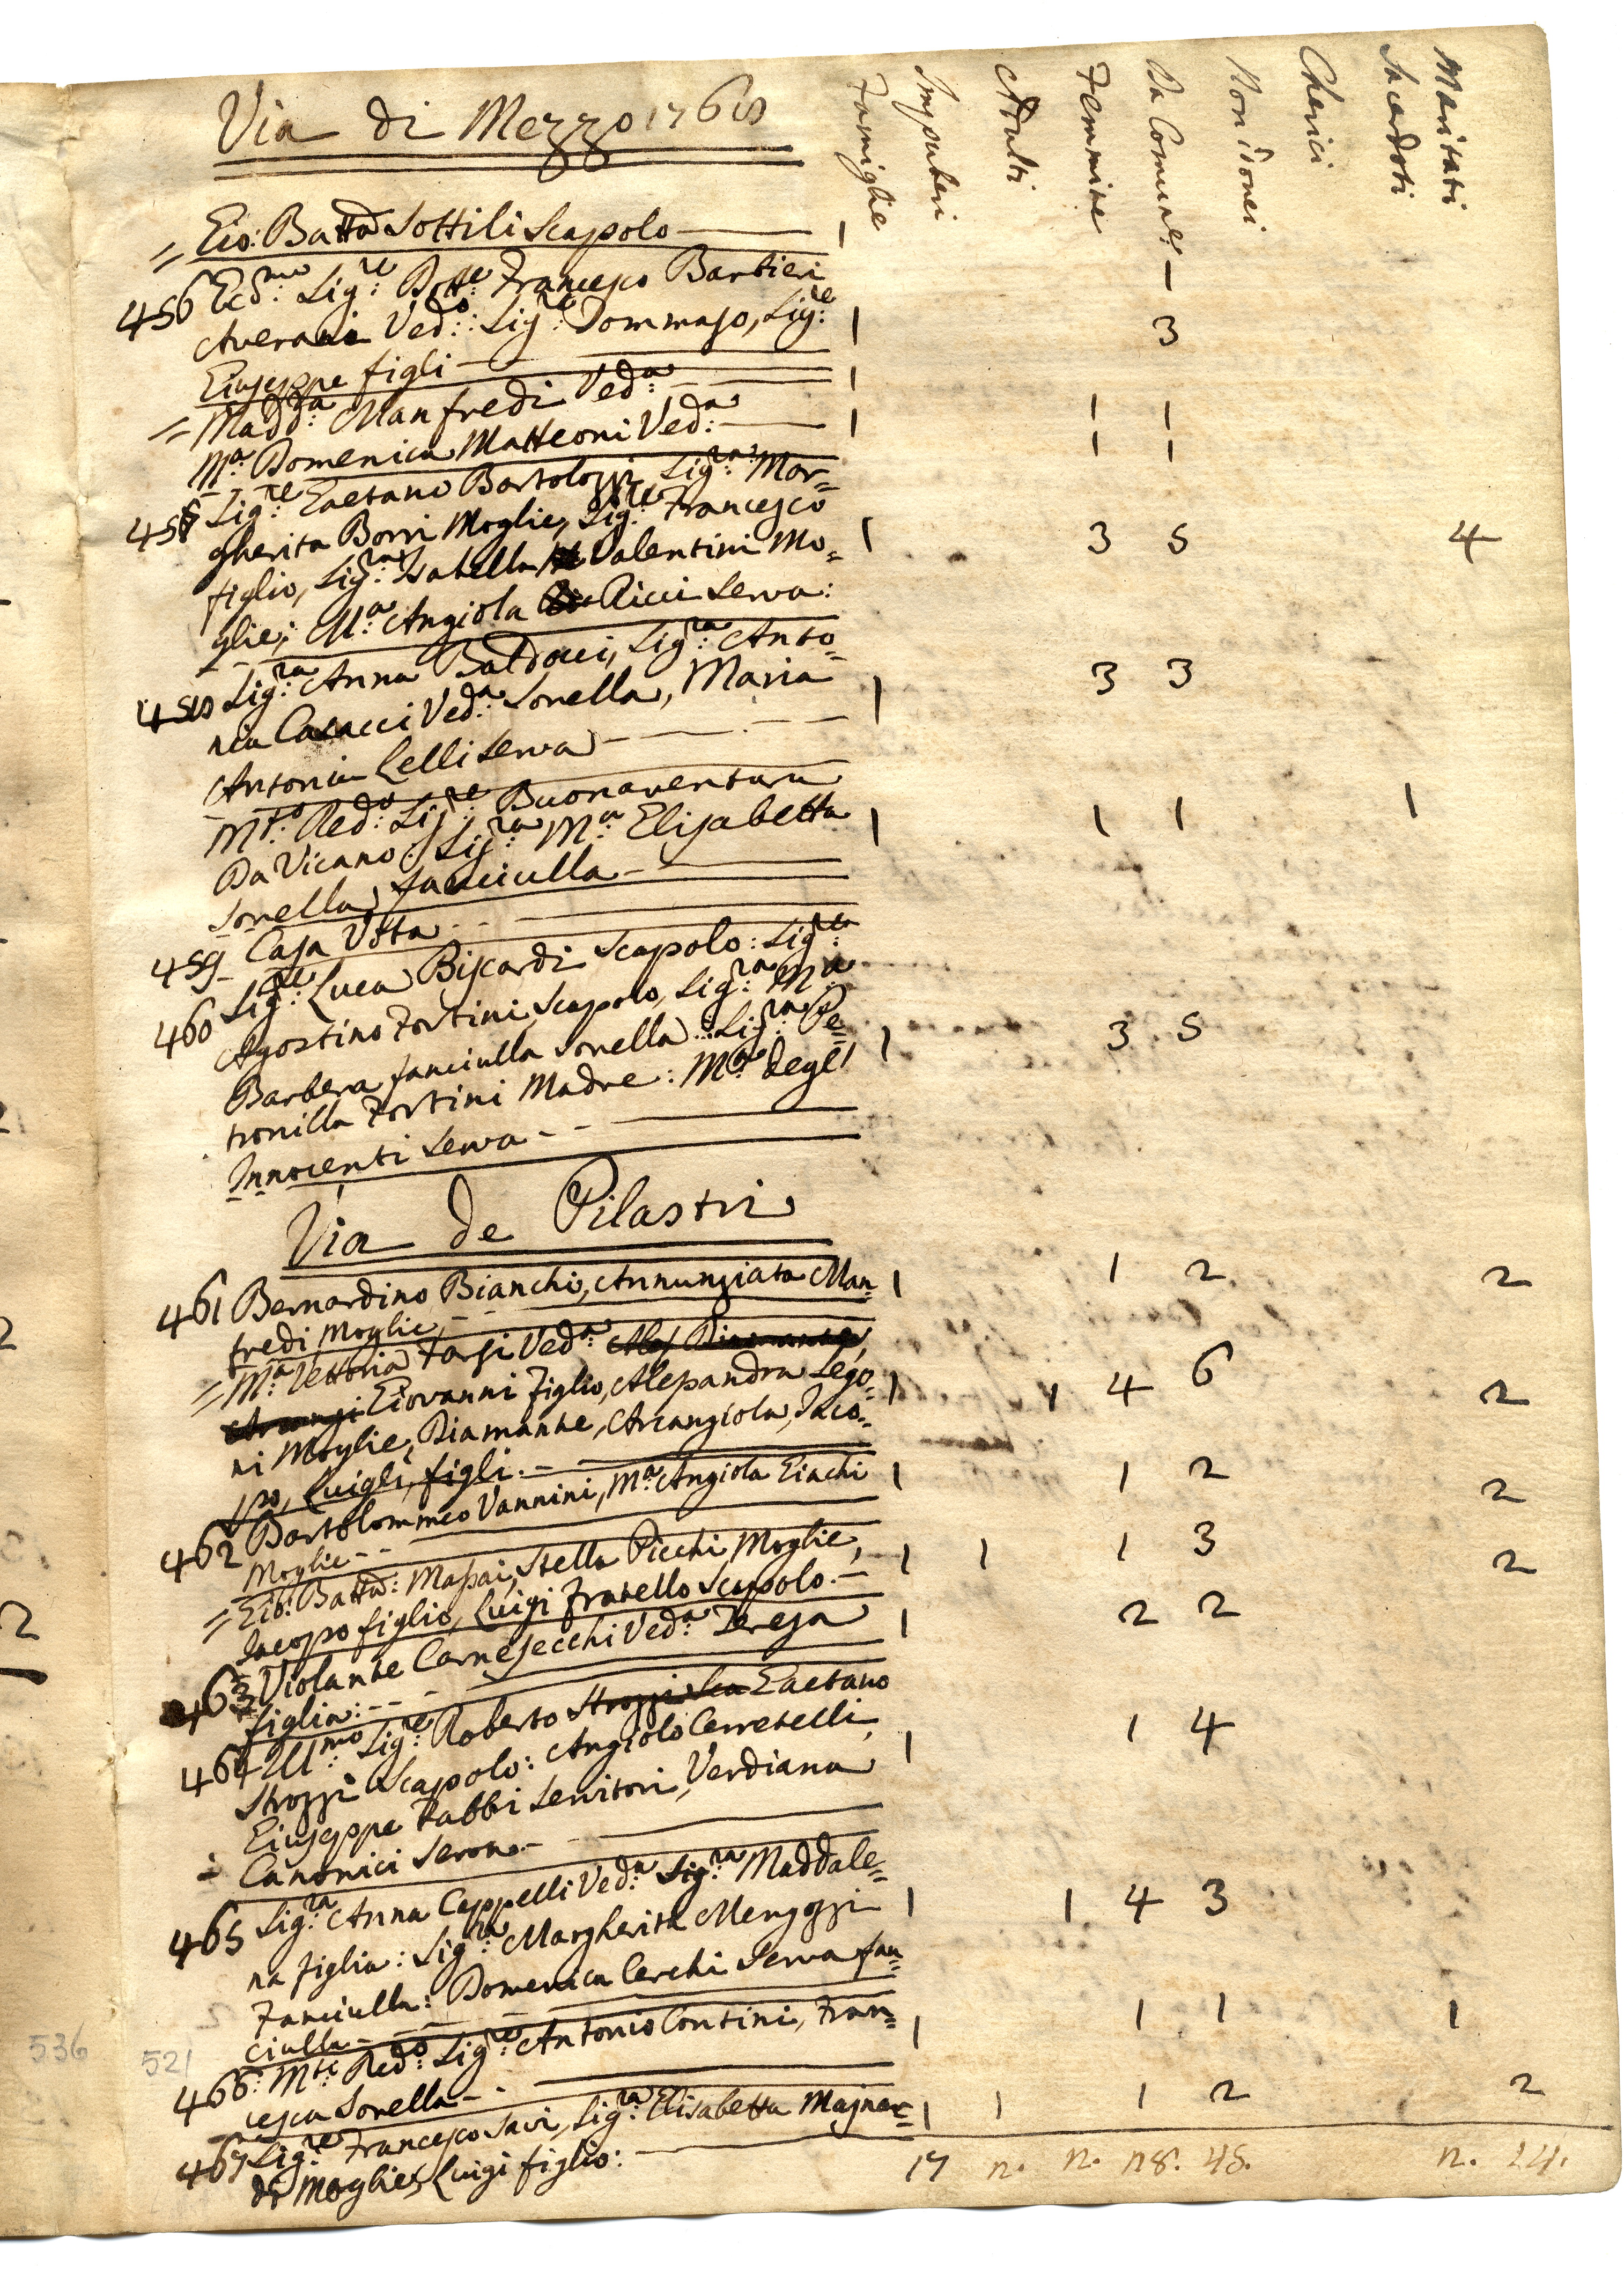 Famiglie Impuberi Adulti Femmine Da Comune Non idonei Cherici Sacerdoti Maritati
Via di Mezzo 1768
= Gio: Batta Sottili Scapolo — 1 1
456 Ecc:mo Sig:re Dott:e Francesco Barbieri
Averani Ved:o: Sig:re Tommaso, Sig:e 1 3
Giuseppe figli —
= Madd:a Manfredi Ved:a — 1 1 1
M:a Domenica Matteoni Ved:a — 1 1 1
457 Sig:re Gaetano Bartolozzi, Sig:ra Mar=
gherita Borri Moglie, Sig:re Francesco
figlio, Sig:ra Isabella Valentini Mo= 1 3 5 4
glie; M:a Angiola Ricci Serva:
458 Sig:ra Anna Baldocci, Sig:ra Anto=
nia Casacci Ved:a Sorella, Maria 1 3 3
Antonia Lelli Serva —
M:to Red:o Sig:re Buonaventura
Da Vicano: Sig:ra M:a Elisabetta 1 1 1 1
Sorella fanciulla —
459 Casa Vota
460 Sig:re Luca Biscardi Scapolo: Sig:re
Agostino Fortini Scapolo, Sig:ra M:a
Barbera fanciulla Sorella: Sig:ra Pe= 1 3 5
tronilla Fortini Madre: M:a degl'
Innocenti Serva - -
Via de Pilastri
461 Bernardino Bianchi, Annunziata Man= 1 1 2 2
fredi Moglie, -
= M:a Vettoria Farsi Ved:a
Giovanni Figlio, Alessandra Lego= 1 1 4 6 2
ni Moglie, Diamante, Arcangiola, Jaco=
po, Luigi, figli. -
462 Bartolommeo Vannini, M:a Angiola Giachi 1 1 2 2
Moglie - -
= Gio: Batta: Massai, Stella Picchi Moglie, 1 1 1 3 2
Jacopo figlio, Luigi Fratello Scapolo. -
463 Violante Carnesecchi Ved:a Teresa 1 2 2
figlia: - - -
464 Ill:mo Sig:re Roberto Strozzi Sca Gaetano
Strozzi Scapolo: Angiolo Cerretelli, 1 1 4
Giuseppe Fabbri Servitori, Verdiana
Canonici Serva -
465 Sig:ra Anna Ceppelli Ved:a Sig:ra Maddale=
na figlia: Sig:ra Margherita Mengozzi 1 1 4 3
Fanciulla: Domenica Cerchi Serva fan=
ciulla -
466: M:to Red:o Sig:re Antonio Contini, Fran= 1 1 1 1
cesca Sorella - -
467 Sig:re Francesco Savi, Sig:ra Elisabetta Majnar= 1 1 1 2 2
di Moglie, Luigi figlio:
17 n. n. n8. 45. n. 14.
536
521